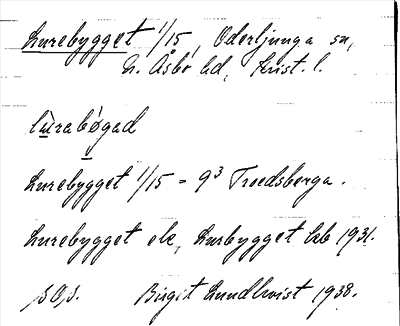 Lurebygget 1/15, Oderljunga sn,
N. Åsbo hd, Krist. l.
lùrabǿgad
Lurebygget 1/15 = 9³ Troedsberga.
Lurebygget el., Lurbygget lsb 1931.
Birgit Lundkvist 1938.